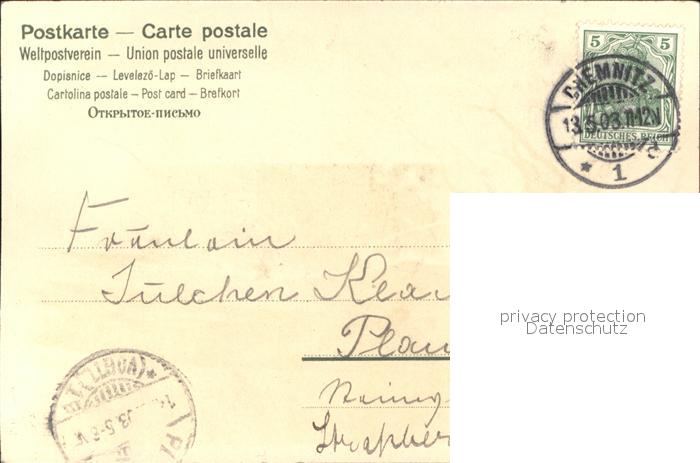 Postkarte — Carte postale
Weltpostverein — Union postale universelle
Dopisnice — Levelező-Lap — Briefkaart
Cartolina postale – Post card – Brefkort
Открытое-письмо
5 5
DEUTSCHES REICH
CHEMNITZ
13.5.03.11-12V.
* 1 c
Fräulein
Julchen
Plau
privacy protection
Datenschutz